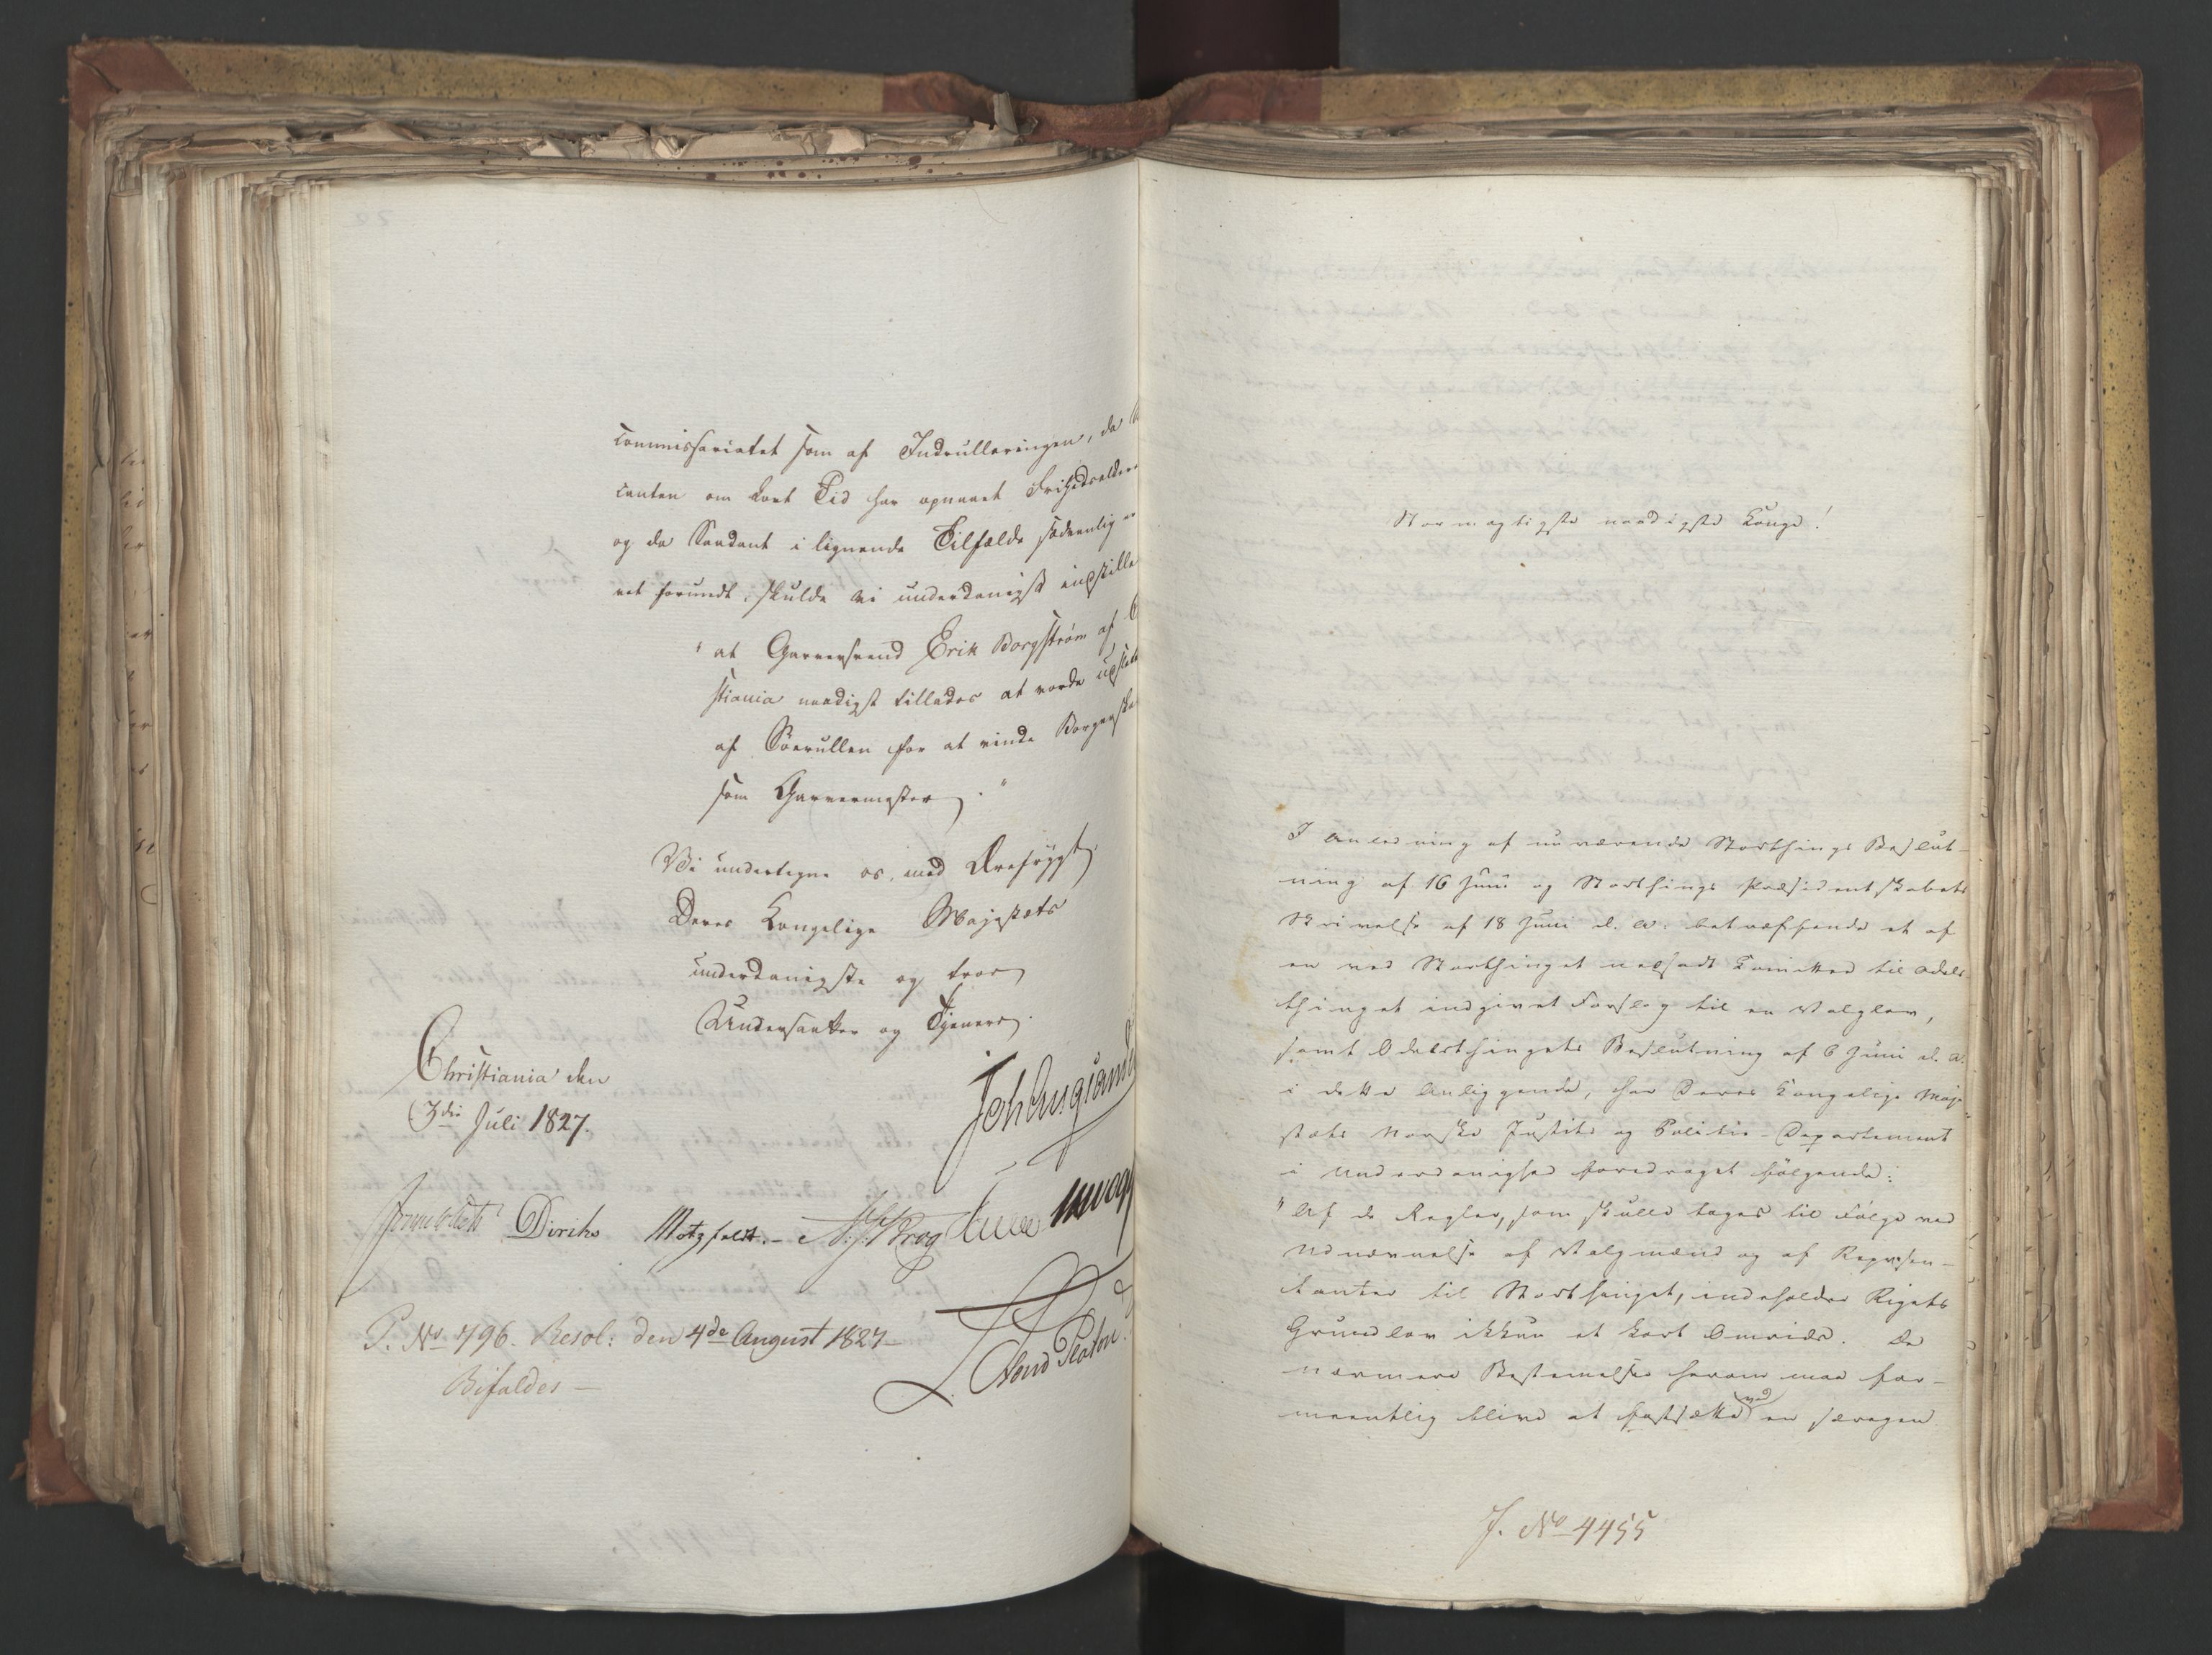 Commissariatet som af Indrulleringen, da
canten om kort Tid har opnaaet Frihedsalder
og da Saadant i lignende Tilfælde sædvanlig er
vet forundt, skulde vi underdanigst indstille
"at Garversvend Erik Borgstrøm af
stiania naadigst tillades at vorde udslet
af Søerullen for at vinde Borgerska
som Garvermester."
Vi undertegne os med Ærefrygt
Deres Kongelige Majestæts
underdanigste og troe
Undersaatter og Tjenere.
Christiania den
3die Juli 1827.
Diriks Motzfeldt. Krog
P. No 796. Resol: den 4de August 1827
Bifaldes
Stormægtigste naadigste Konge!
I Anledning af nuværende Storthings Beslut-
ning af 16 Juni og Storthings Præsidentskabets
Skrivelse af 18 Juni d. A. betræffende et af
en ved Storthinget nedsadt Comitteed til Odels-
thinget indgivet Forslag til en Valglov,
samt Odelsthingets Beslutning af 6 Juni d. A.
i dette Anliggende, har Deres Kongelige Maje-
stæts Norske Justits og Politie-Departement
i Underdanighed foredraget følgende:
"Af de Regler, som skulle tages til Følge ved
Udnævnelse af Valgmænd og af Repræsen-
tanter til Storthinget, indeholder Rigets
Grundlov ikkun et kort Omrids. De
nærmere Bestemmelser herom maa for-
meentlig blive at fastsætte ved en særegen
J. No 4455